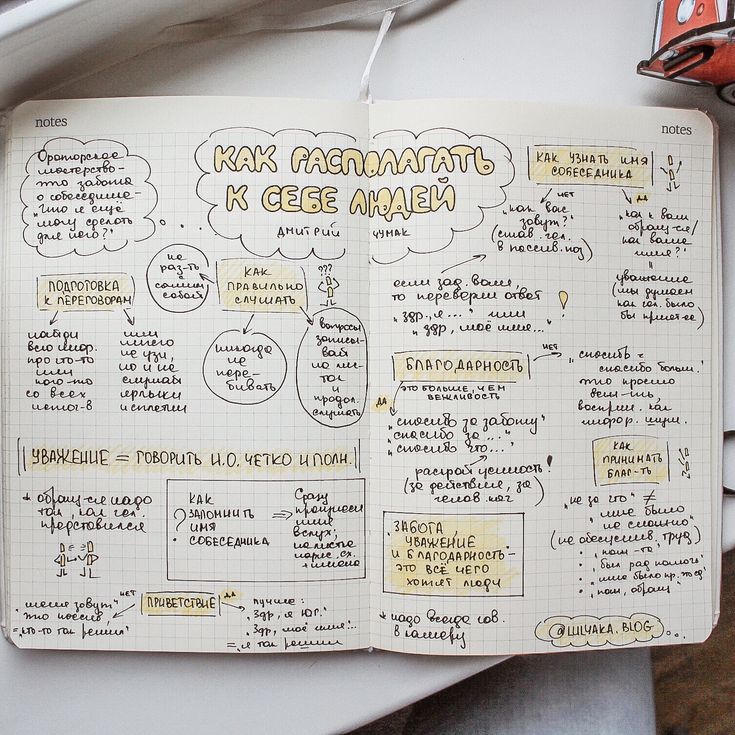 notes
notes
Ораторское
мастерство –
это забота
о собеседнике –
"Что я ещё
могу сделать
для него?"
КАК РАСПОЛАГАТЬ
К СЕБЕ ЛЮДЕЙ
ДМИТРИЙ ЧУМАК
ПОДГОТОВКА
К ПЕРЕГОВОРАМ
найди
всю инфор.
про кто-то
или
кого-то
со всех
источ-в
или
ничего
не узн,
но и не
слушай
ярлыки
и сплетни
КАК
ПРАВИЛЬНО
СЛУШАТЬ
???
не
раз-ть
с самим
собой
никогда
не
пере-
бивать
вопросы
записы-
вай
на лис-
ток
и
продол.
слушать
УВАЖЕНИЕ = ГОВОРИТЬ И.О. ЧЕТКО И ПОЛН.
* обращ-ся надо
так, как чел.
представился
?
КАК
ЗАПОМНИТЬ
ИМЯ
СОБЕСЕДНИКА
Сразу
произнеси
имя
вслух;
на листке
нарис. сх.
+ имена
ПРИВЕТСТВИЕ
НЕТ
"меня зовут"
это пассив,
="кто-то так решил"
ДА
лучше:
"Здр, я ЮГ."
"Здр, моё имя..."
= я так решил
КАК УЗНАТЬ ИМЯ
СОБЕСЕДНИКА
НЕТ
"как вас
зовут?"
(став. чел.
в пассив. поз)
ДА
"как к вам
обращ-ся /
как ваше
имя?"
=
уважение
(мы думаем
как чел. было
бы прият-ее)
если зад. вам,
то переверни ответ
"здр, я ..." или
"здр, моё имя..."
!
БЛАГОДАРНОСТЬ
ЭТО БОЛЬШЕ, ЧЕМ
ВЕЖЛИВОСТЬ
НЕТ
"спасибо" и
"спасибо больш."
это просто
воспри. как
инфор. шум.
ДА
"спасибо за заботу"
"спасибо за ..."
"спасибо что..."
раскрой ценность!
(за действие, за
челов. кач)
КАК
ПРИНИМАТЬ
БЛАГ-ТЬ
"не за что" ≠
мне было
"не сложно"
(не обесценив, труд)
• "пож-та"
• "был рад помочь"
• "мне было пр.
• "пож, обращ."
ЗАБОТА,
УВАЖЕНИЕ
И БЛАГОДАРНОСТЬ –
ЭТО ВСЁ ЧЕГО
ХОТЯТ ЛЮДИ
* надо всегда гов.
в камеру
@ШЛЧАКА.BLOG